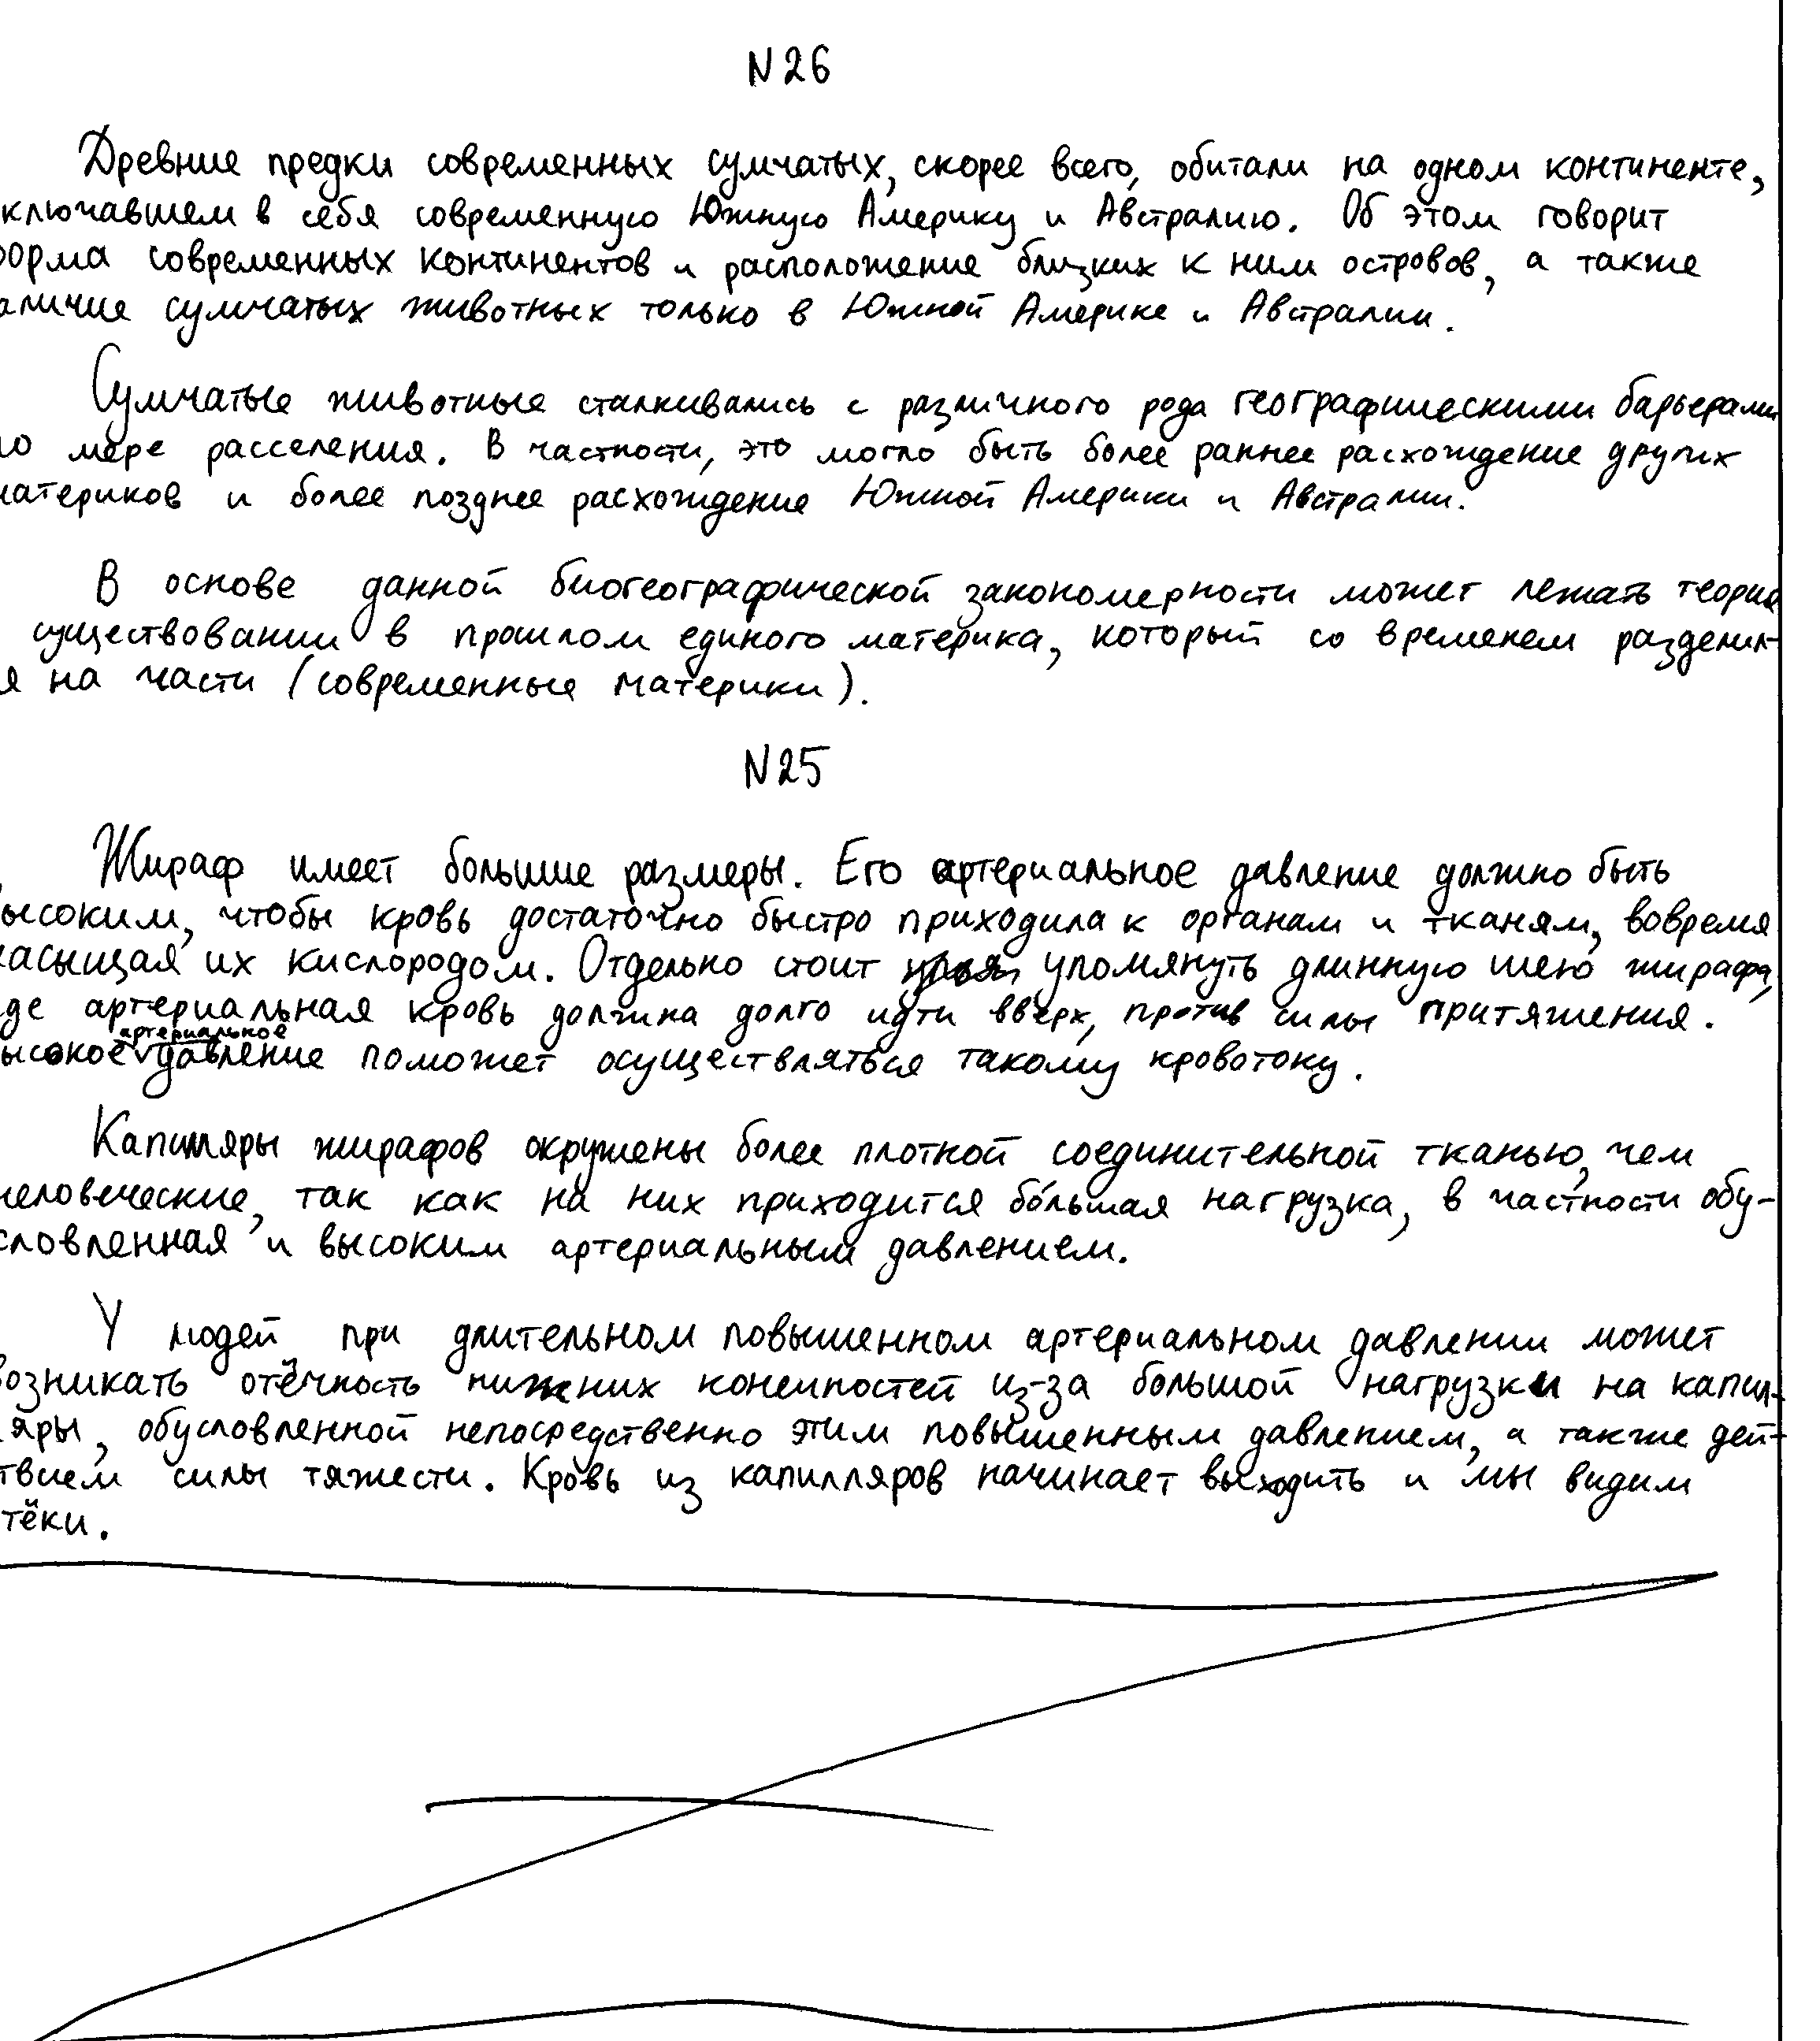 N26
Древние предки современных сумчатых, скорее всего, обитали на одном континенте,
ключавшем в себя современную Южную Америку и Австралию. Об этом говорит
орма современных континентов и расположение близких к ним островов, а также
аличие сумчатых животных только в Южной Америке и Австралии.
Сумчатые животные сталкивались с различного рода географическими барьерами
по мере расселения. В частности, это могло быть более раннее расхождение других
материков и более позднее расхождение Южной Америки и Австралии.
В основе данной биогеографической закономерности может лежать теория
существовании в прошлом единого материка, который со временем разделил-
я на части (современные материки).
N25
Жираф имеет большие размеры. Его артериальное давление должно быть
ысоким, чтобы кровь достаточно быстро приходила к органам и тканям, вовремя
насыщая их кислородом. Отдельно стоит упомянуть длинную шею жирафа,
де артериальная кровь должна долго идти вверх, против силы притяжения.
ысокое артериальное давление поможет осуществляться такому кровотоку.
Капилляры жирафов окружены более плотной соединительной тканью, чем
человеческие, так как на них приходится бо́льшая нагрузка, в частности обу-
словленная и высоким артериальным давлением.
У людей при длительном повышенном артериальном давлении может
возникать отёчность нижних конечностей из-за большой нагрузки на капил-
ляры, обусловленной непосредственно этим повышенным давлением, а также дей-
твием силы тяжести. Кровь из капилляров начинает выходить и мы видим
тёки.